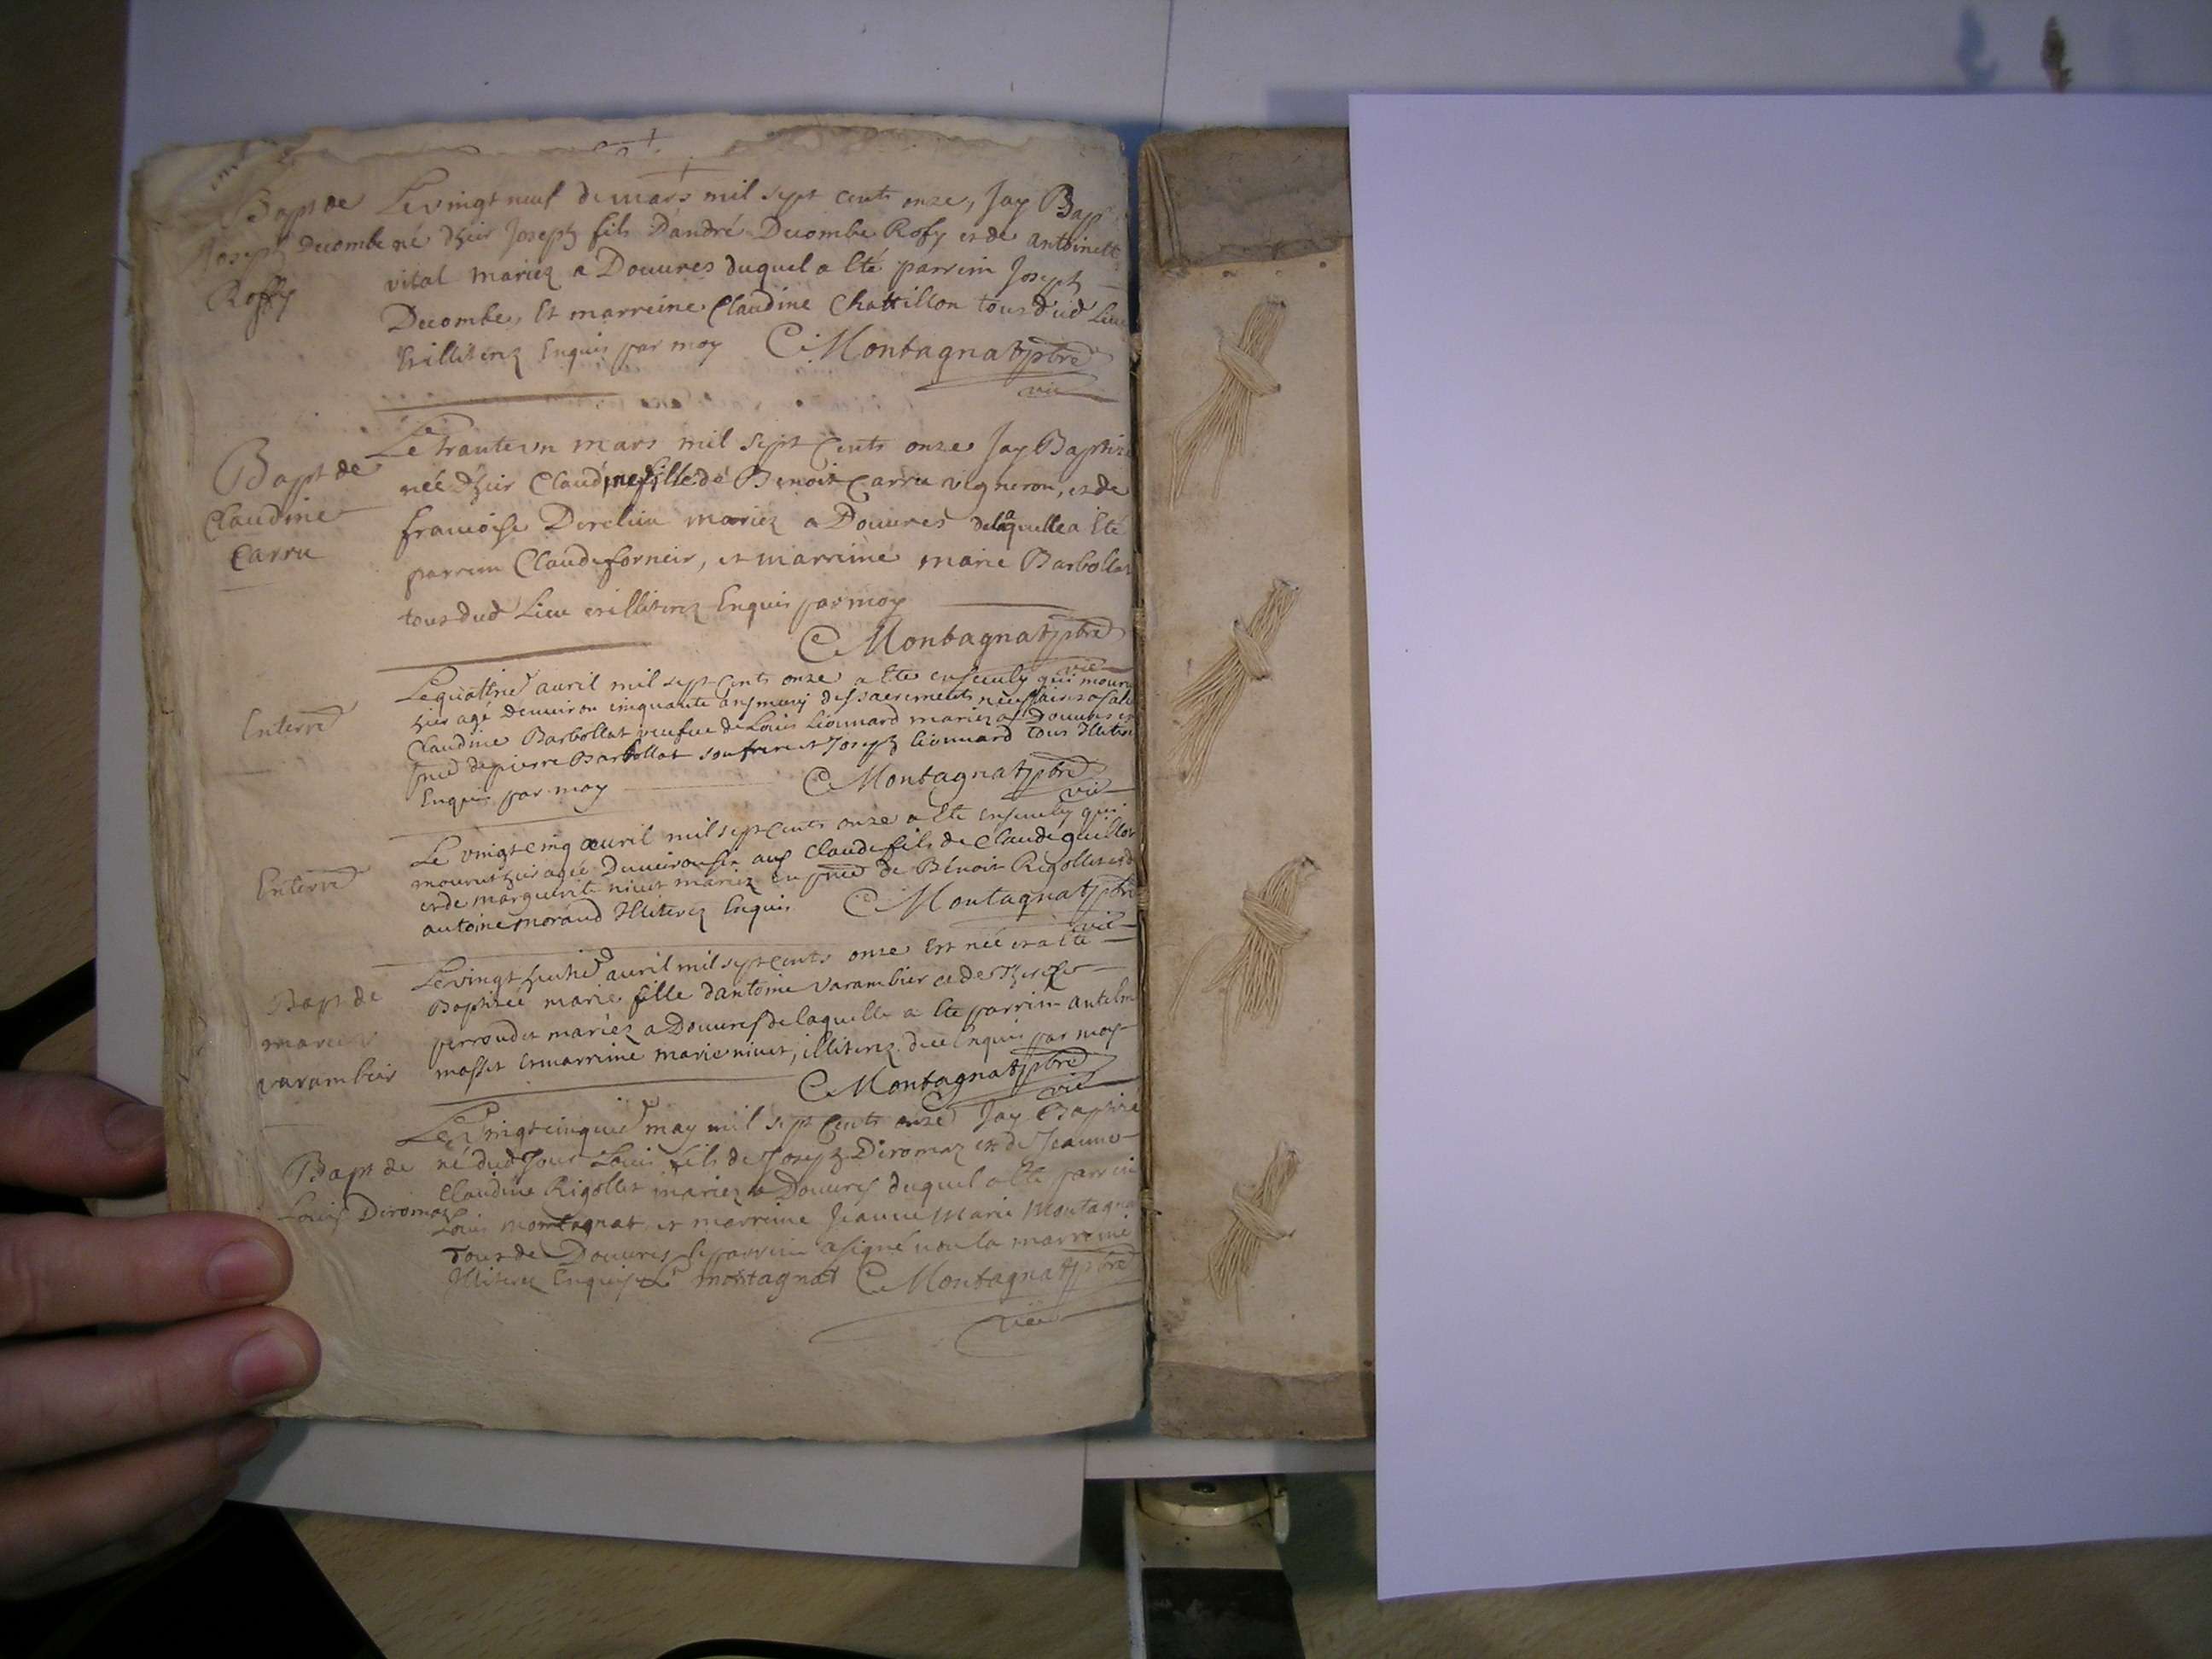 Bapt de
Joseph Decombe
Roffy
Le vingt neuf de mars mil sept cents onze, Jay Bap
né dhier Joseph fils D'andré Decombe Rofy et de antoinett
vital mariez a Douures duquel a Eté parrein Joseph
Decombe, Et marreine Claudine Chattillon tous dud Lieu
Et illiterez Enquis par moy C Montagnat ptre
vic
Bapt de
Claudine
Carru
Le trante un mars mil sept Cents onze Jay Baptizé
née dhier Claudine fille de Benoit Carru vigneron, et de
francoise mariez a Douures de laquelle a Eté
parrein Claude forneir, et marreine marie Barbollat
tous dud Lieu et illiterez Enquis par moy
C Montagnat ptre
vic
Enterré
Le quattrie auril mil sept Cents onze a Ete enseuely qui mourut
hier agé denuiron cinquante ans muny des sacrements
Claudine Barbollat veufue de Louis Liouuard mariez a Douures en
pnce de pierre Barbollat son frere et Joseph liouuard tous Illiter
Enquis par moy C Montagnat ptre
vic
Enterré
Le vingt cinq auril mil sept Cents onze a Ete enseuely qui
mourut hier agée Denuiron six ans Claude fils de Claude guillot
et de marguerite niuet mariez en pnce de Benoit Rigollet et d
antoine morand Illiterez Enquis C Montagnat ptre
vic
Bapt de
marie
varambier
Le vingt huitie auril mil sept cents onze Est née et a Eté
Baptizée marie fille dantoine varambier et de
perroudet mariez a Douures de laquelle a Ete parrein antelme
masset et marreine marie niuet, illiterez Enquis par moy
C Montagnat ptre
vic
Bapt de
Louis Diromaz
Le Vingt cinquie may mil sept Cents onze Jay Baptizé
né dud Jour Louis fils de Joseph Diromaz et de Jeanne
Claudine Rigollet mariez a Douures duquel a Ete parrein
Louis montagnat et marreine Jeanne Marie Montagna
Tous de Douures le parrein a signé non la marreine
Illiterez Enquise Ls montagnat C Montagnat ptre
vic